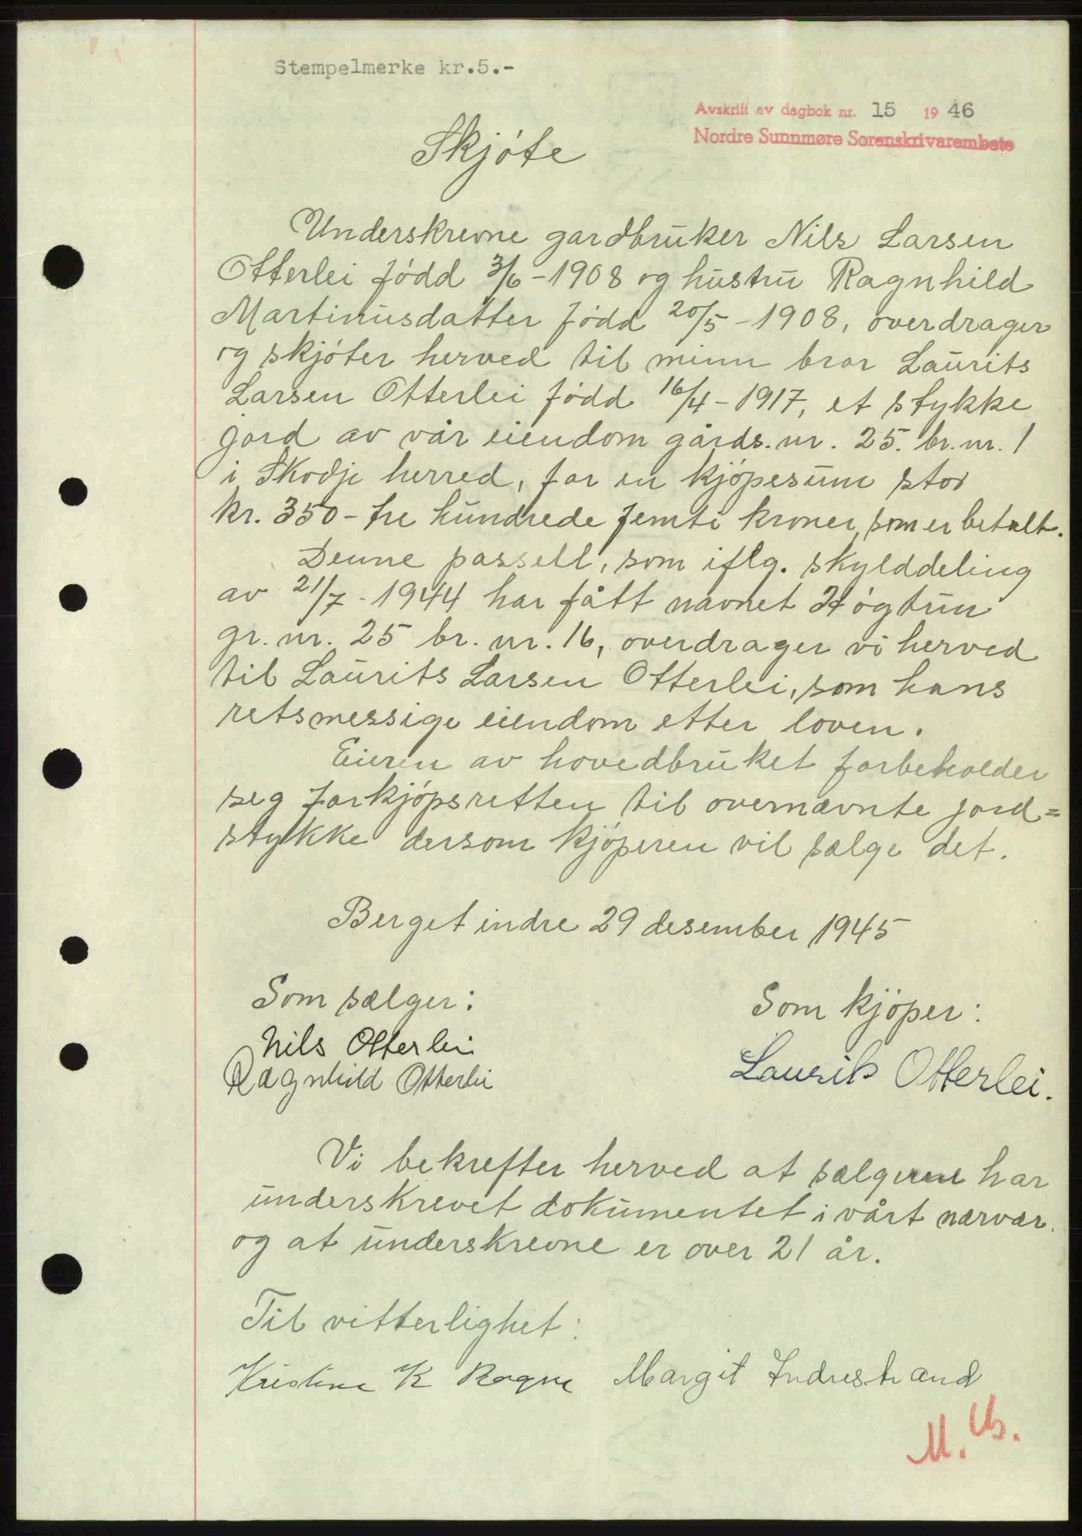 Stempelmerke kr.5.-
Avskrift av dagbok nr. 15 1946
Nordre Sunnmøre Sorenskrivarembete
Skjóte
Underskrevne gardbruker Nils Larsen
Otterlei född 3/6-1908 og hustru Ragnhild
Martinusdatter född 20/5-1908, overdrager
og skjöter herved til minn bror Laurits
Larsen Otterlei född 16/4-1917, et stykke
jord av vår eiendom gårds.nr. 25. br.nr. 1
i Skodje herred, for en kjöpesum stor
kr. 350- tre hundrede femti kroner, som er betalt.
Denne passell, som iflg. skylddeling
av 21/7-1944 har fått navnet Högtun
gr. nr. 25 br. nr. 16, overdrager vi herved
til Laurits Larsen Otterlei, som hans
retsmessige eiendom etter loven.
Eieren av hovedbruket forbeholder
seg forkjöpsretten til overnævnte jord=
stykke dersom kjöperen vil sælge det.
Berget indre 29 desember 1945
Som sælger:
Som kjöper:
Nils Otterlei
Ragnhild Otterlei
Laurits Otterlei.
Vi bekrefter herved at sælgerne har
underskrevet dokumentet i vårt nærvær.
og at underskrevne er over 21 år.
Til vitterlighet:
Kristine K Rogne Margit Indrestrand